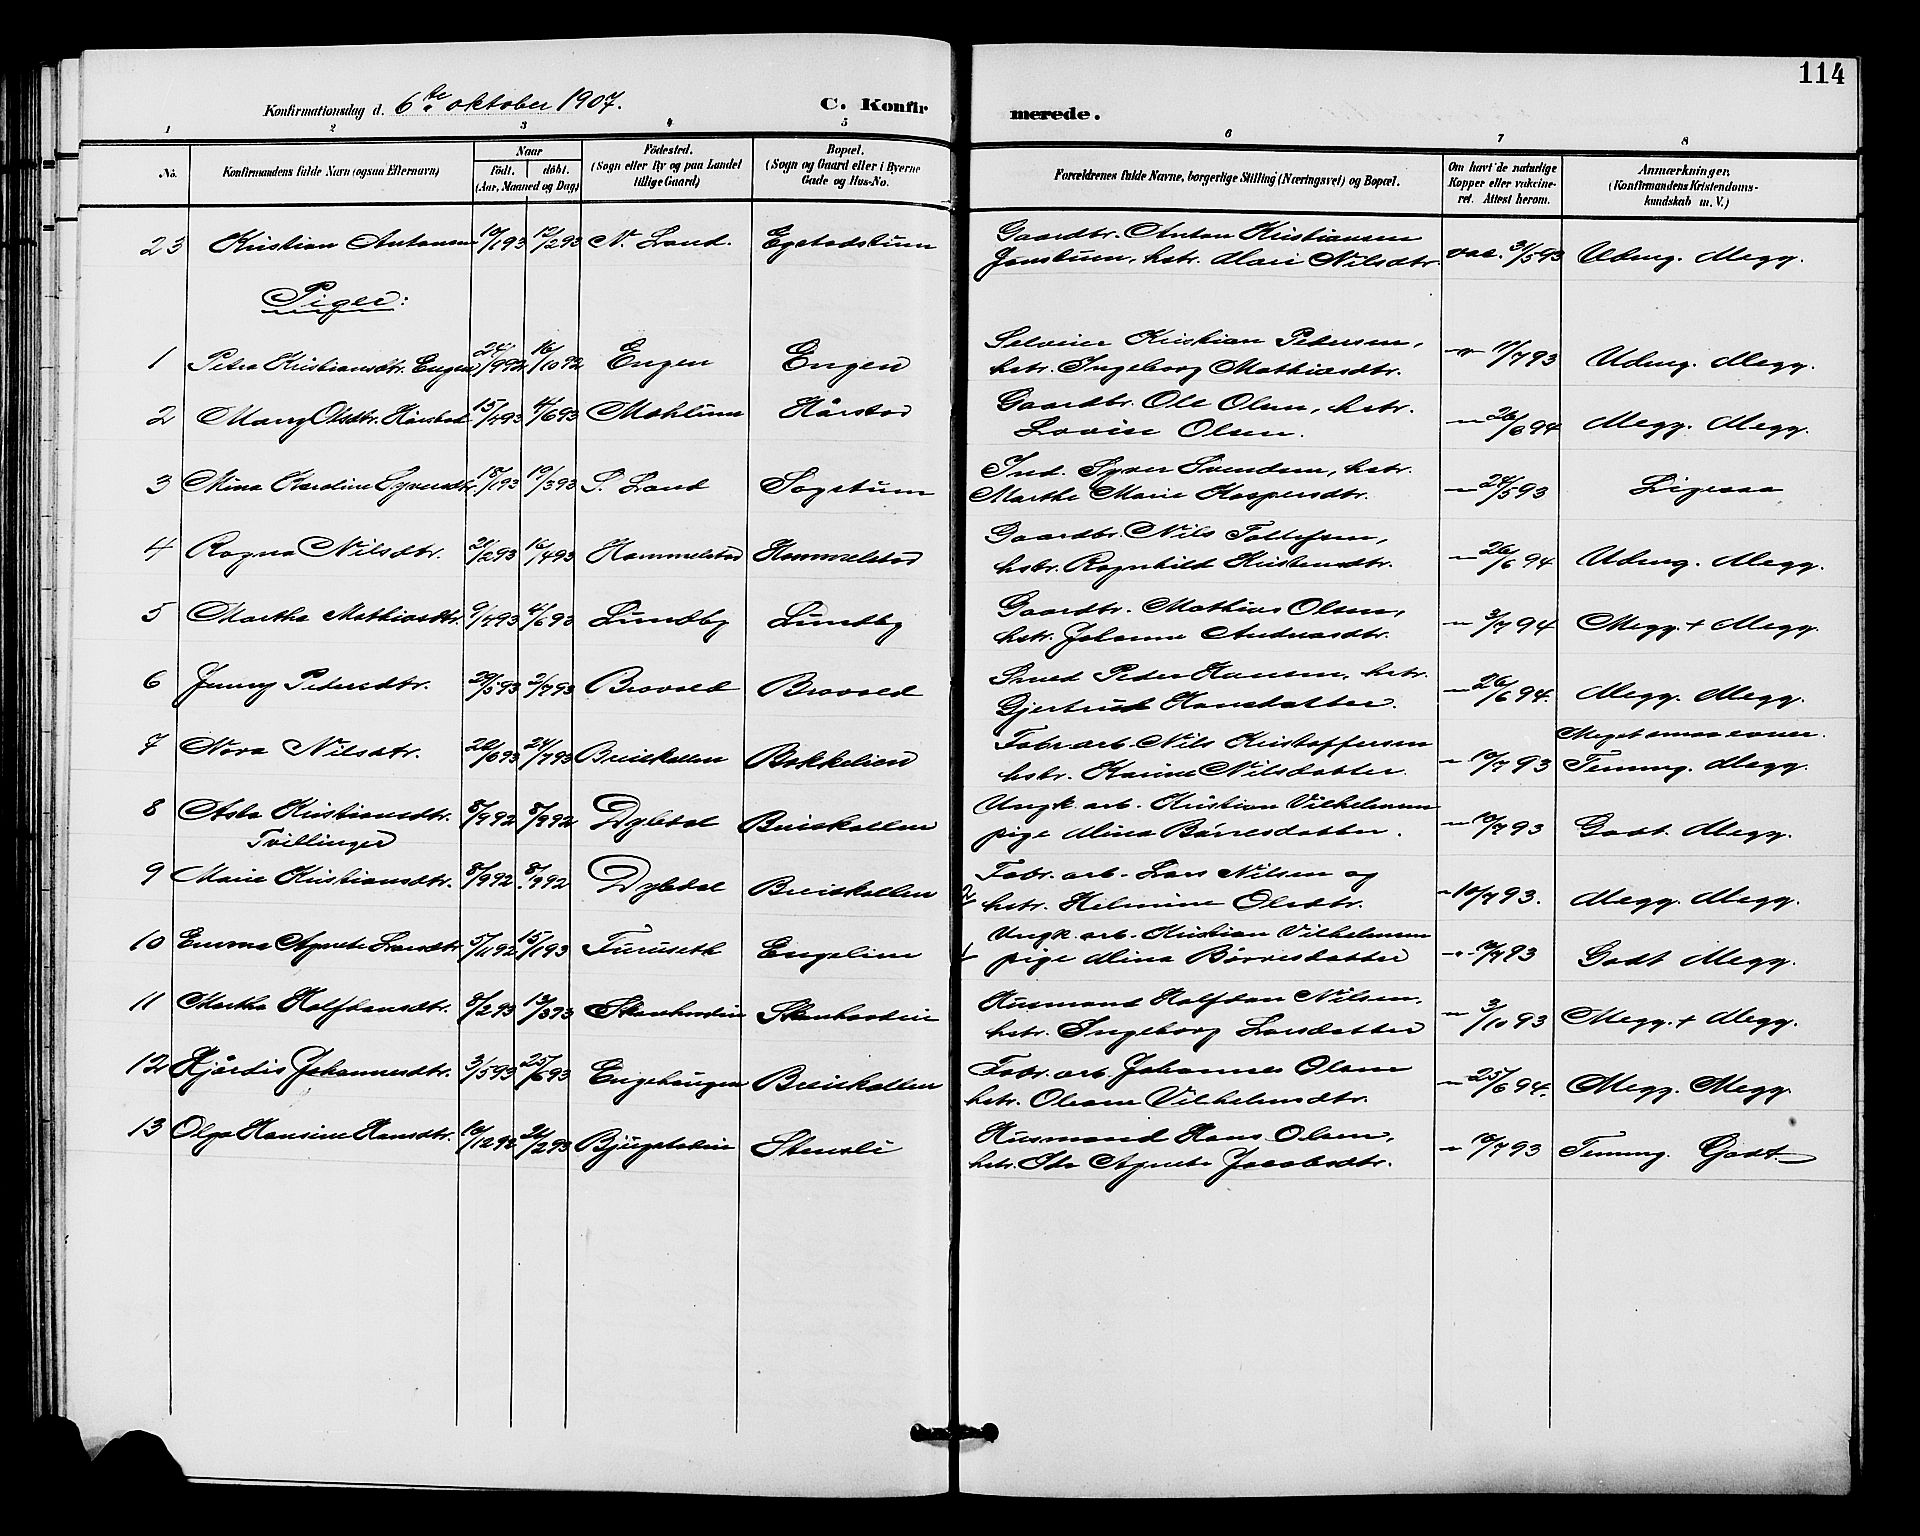 114
Konfirmationsdag d. 6te oktober 1907. C. Konfirmerede.
1 2 3 4 5 6 7 8
No. Konfirmandens fulde Navn (ogsaa Efternavn) Naar født. døbt. (Aar, Maaned og Dag) Fødested. (Sogn eller By og paa Landet tillige Gaard) Bopæl. (Sogn og Gaard eller i Byerne Gade og Hus-No. Forældrenes fulde Navne, borgerlige Stilling (Næringsvei) og Bopæl. Om havt de naturlige Kopper eller vakcineret. Attest herom. Anmærkninger, (Konfirmandens Kristendomskundskab m. V.)
23 Kristian Antonsen 10/1 93 12/2 93 N. Land. Egstadstuen Gaardbr. Anton Kristiansen vac. 31/5 93 Udmg. Megg.
hstr. Mari Nilsdtr.
Piger:
1 Petra Kristiansdtr. Engen 24/9 92 16/10 92 Engen Engen Selveier Kristian Petersen, 11/7 93 Udmg. Megg.
hstr. Ingeborg Mathiasdtr.
2 Mary Olsdtr. Hårstad 15/4 93 4/6 93 Mæhlum Hårstad Gaardbr. Ole Olsen, hstr. 26/6 94 Megg. Megg.
Lovise Olsen.
3 Mina Karoline Syversdtr. 18/1 93 19/3 93 S. Land Sogstuen Ind. Syver Svendsen, hstr. 24/5 93 Ligesaa
Marthe Marie Kaspersdtr.
4 Ragna Nilsdtr. 21/2 93 16/4 93 Hammelstad Hammelstad Gaardbr. Nils Tollefsen, 26/6 94 Udmg. Megg.
hstr. Ragnhild Kristensdtr.
5 Martha Mathiasdtr. 9/4 93 4/6 93 Lundby Lundby Gaardbr. Mathias Olsen, 3/7 94 Megg.+ Megg.
hstr. Johanne Andreasdtr.
6 Jenny Petersdtr. 29/5 93 2/7 93 Bravold Bravold Smed Peder Hansen, hstr. 26/6 94. Megg. Megg.
Gjertrud Hansdatter.
7 Nora Nilsdtr. 22/6 93 24/7 93 Breiskallen Bakkelien Fabr. arb. Nils Kristoffersen 10/7 93 Meget smaa evner.
hstr. Karine Nilsdatter. Temmg. Megg.
8 Asta Kristiansdtr. 8/9 92 8/9 92 Dybdal Breiskallen Ungk. arb. Kristian Vilhelmsen 10/7 93 Godt. Megg.
Tvillinger pige Mina Børresdatter.
9 Marie Kristiansdtr. 8/9 92 8/9 92 Dybdal Breiskallen Fabr. arb. Lars Nilsen og 10/7 93. Megg. Megg.
hstr. Helmine Olsdtr.
10 Emma Agnete Larsdtr. 5/11 92 15/1 93 Furuseth Engelien Ungk. arb. Kristian Vilhelmsen 10/7 93 Godt Megg.
pige Mina Børresdatter
11 Martha Halfdansdtr. 8/2 93 13/3 93 Husmand Halfdan Nilsen, 3/10 93 Megg.+ Megg.
hstr. Ingeborg Larsdatter
12 Hjørdis Johannesdtr. 3/5 93 25/6 93 Engehaugen Breiskallen Fabr. arb. Johannes Olsen 25/6 94. Megg. Megg.
hstr. Oleane Vilhelmsdtr.
13 Olga Hansine Hansdtr. 10/12 92 26/2 93 Stensli Husmand Hans Olsen, 10/7 93 Temmg. Godt.
hstr. Ida Agnete Jacobsdtr.